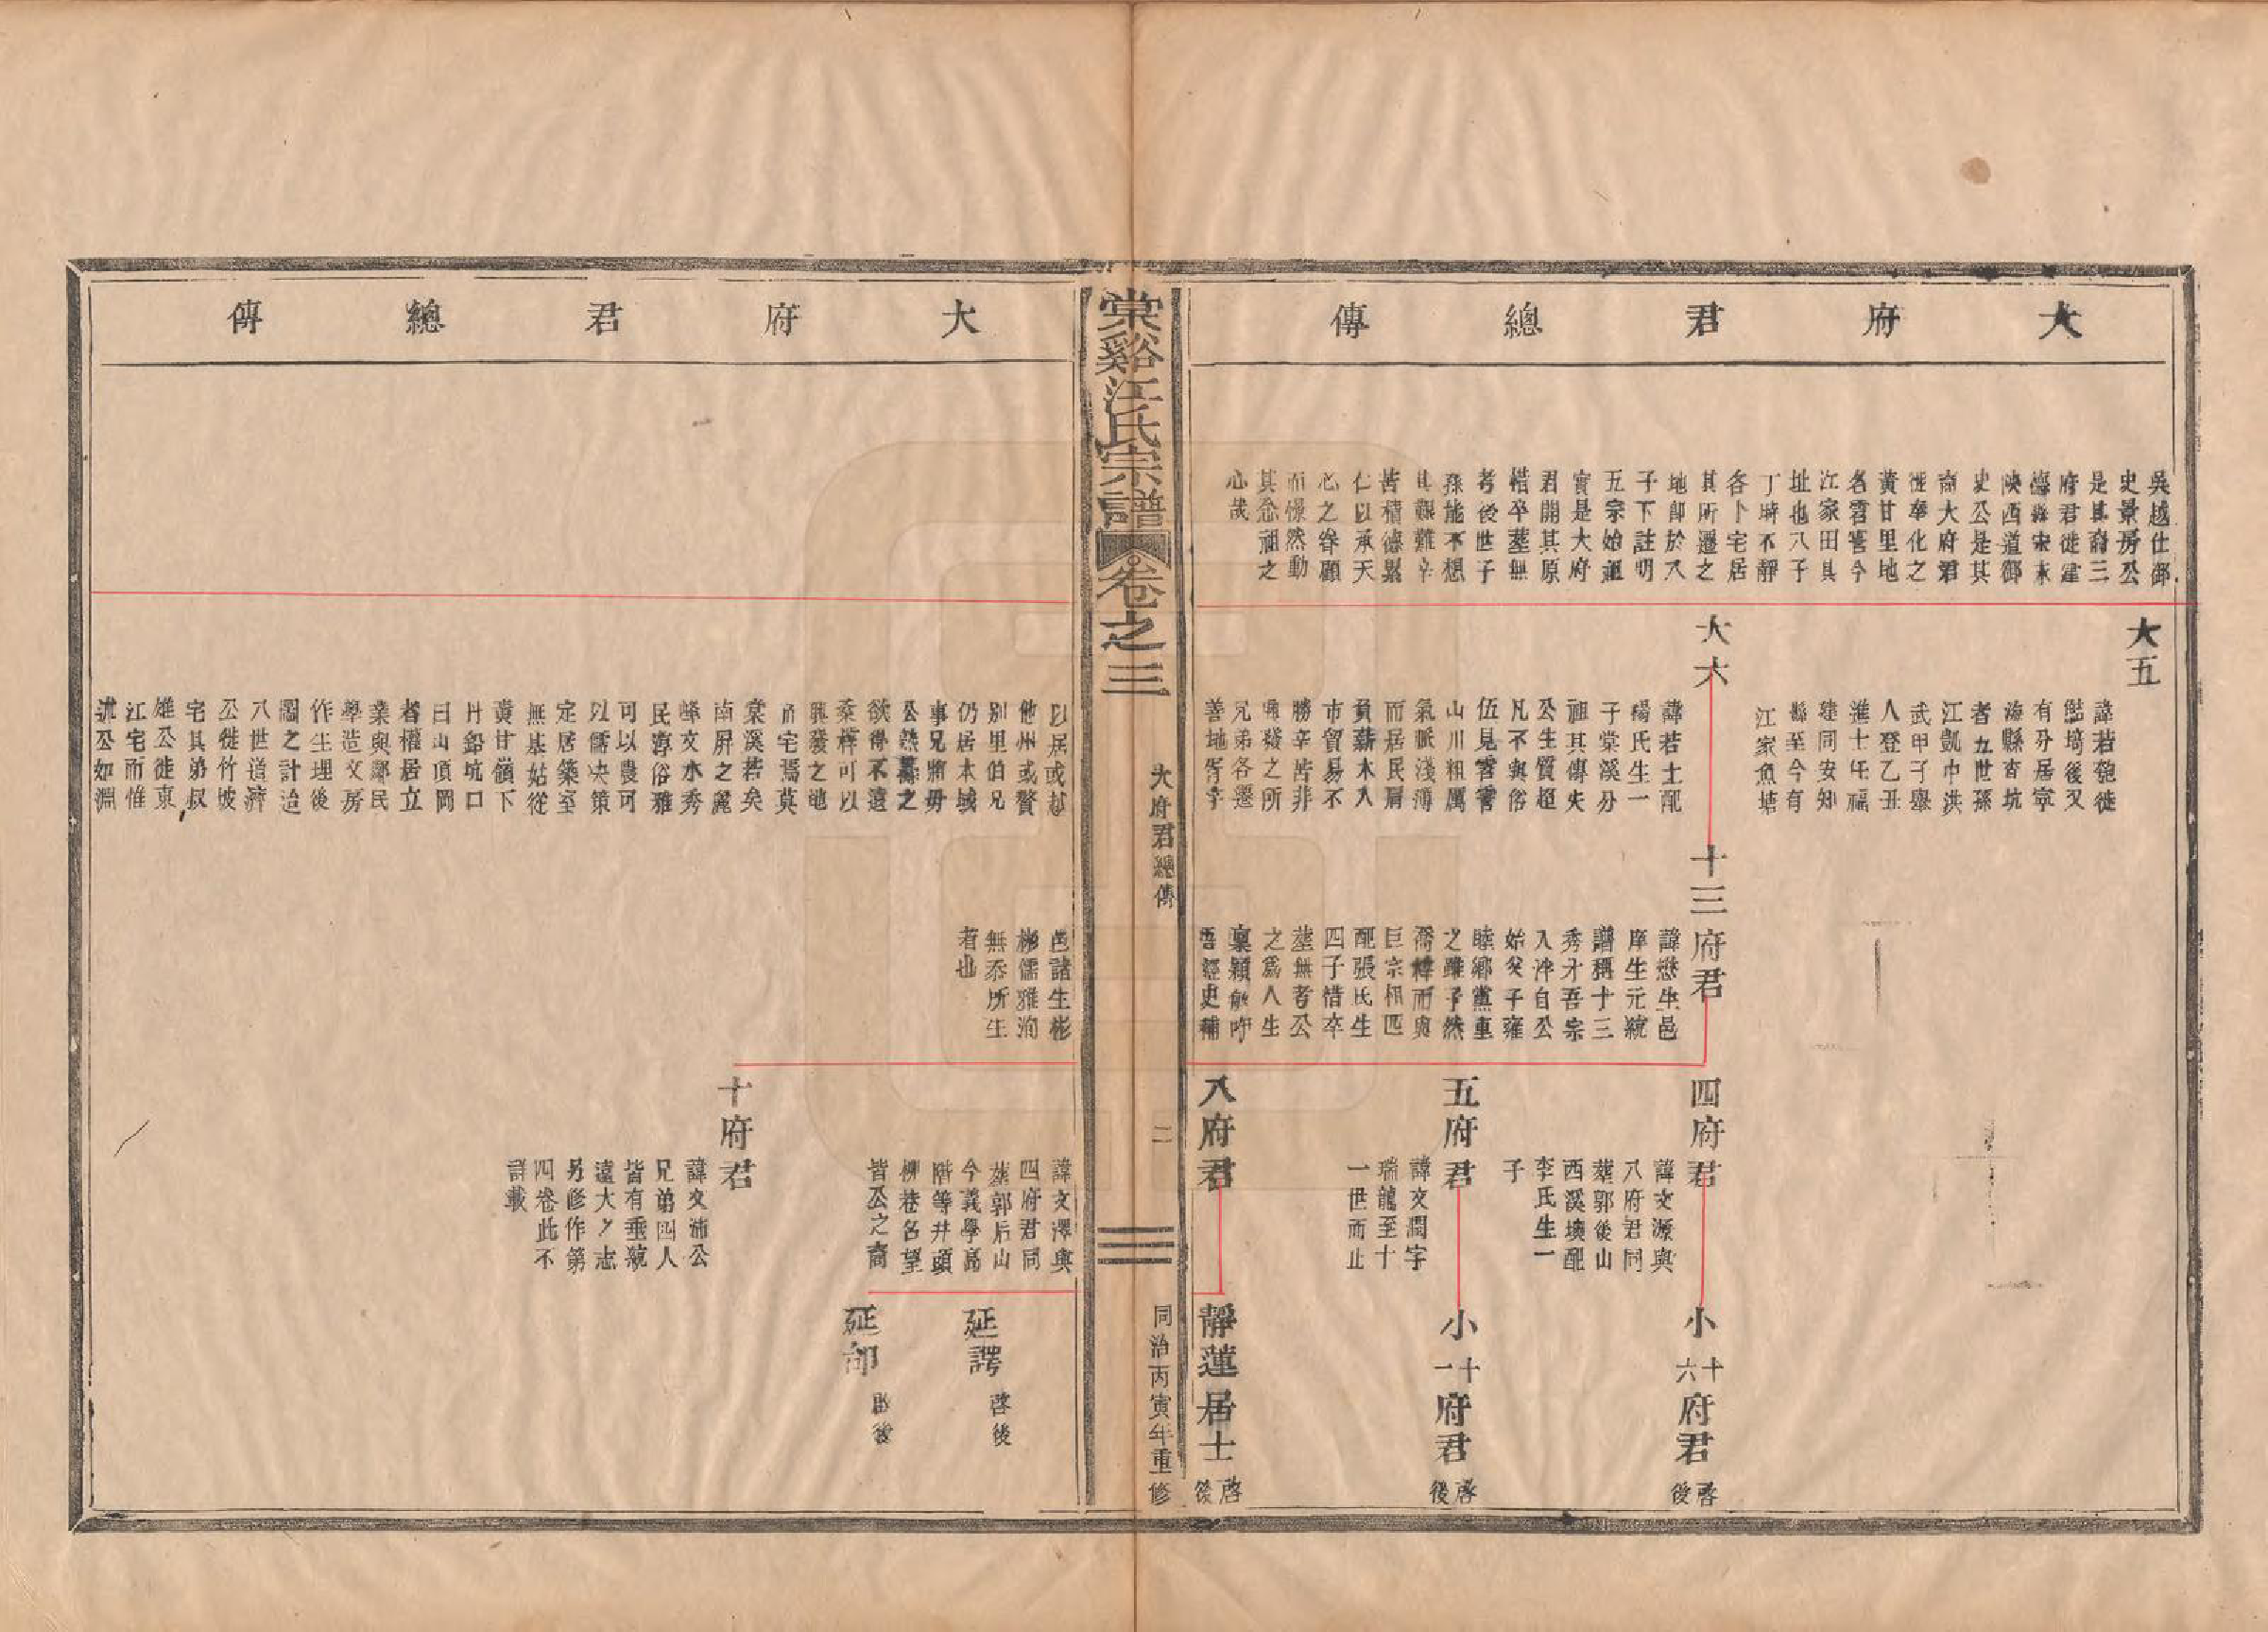 大府君總傳
吳越仕御
史景房公
是其裔三
府君徙建
德縣宋末
陝西道御
史公是其
裔大府君
徙奉化之
黃甘里地
名雲霄今
江家田其
址也八子
丁時不靜
各卜宅居
其所遷之
地卽於八
子下註明
五宗始祖
實是大府
君開其原
惜卒塟無
考後世子
孫能不想
其艱難辛
苦積德累
仁以承天
心之眷顧
而惕然動
其念祖之
心哉
大五
諱若匏徙
鮚埼後又
有分居寧
海縣杏坑
者五世孫
江凱中洪
武甲子舉
人登乙丑
進士任福
建同安知
縣至今有
江家魚塘
大六
諱若土配
楊氏生一
子棠溪分
祖其傳失
公生質超
凡不與俗
伍見雲霄
山川粗厲
氣脈淺薄
而居民屑
負薪木入
市貿易不
勝辛苦非
興發之所
兄弟各遷
善地胥宇
十三府君
諱懋生邑
庠生元統
譜稱十三
秀才吾宗
入泮自公
始父子雍
睦鄉黨重
之雖孑然
喬梓而與
巨宗相匹
配張氏生
四子惜卒
塟無考公
之爲人生
稟穎敏吟
吾經史補
四府君
諱文源與
八府君同
塟郭後山
西溪塽配
李氏生一
子
小十六府君
啓後
五府君
諱文潤字
瑞龍至十
一世而止
小十一府君
啓後
八府君
靜蓮居士
啓後
棠谿江氏宗譜
卷之三
大府君總傳
二
同治丙寅年重修
大府君總傳
以居或趂
他州或贅
別里伯兄
仍居本城
事兄將毋
公熱鄰之
欲得不遠
桑梓可以
興發之地
而宅焉莫
棠溪若矣
南屏之麓
峰文水秀
民淳俗雅
可以農可
以儒決策
定居築室
無基姑從
黃甘嶺下
丹鉛坑口
曰山頂岡
者權居立
業與鄰民
學造文房
作生理後
圖之計迨
八世道濟
公徙竹坡
宅其弟叔
雄公徙東
江宅而惟
述公如淵
邑諸生彬
彬儒雅洵
無忝所生
者也
諱文澤與
四府君同
塟郭后山
今義學高
階等井頭
柳巷名望
皆公之裔
延諤
啓後
延郃
啓後
十府君
諱文沛公
兄弟四人
皆有垂統
遠大之志
另修作第
四卷此不
詳載